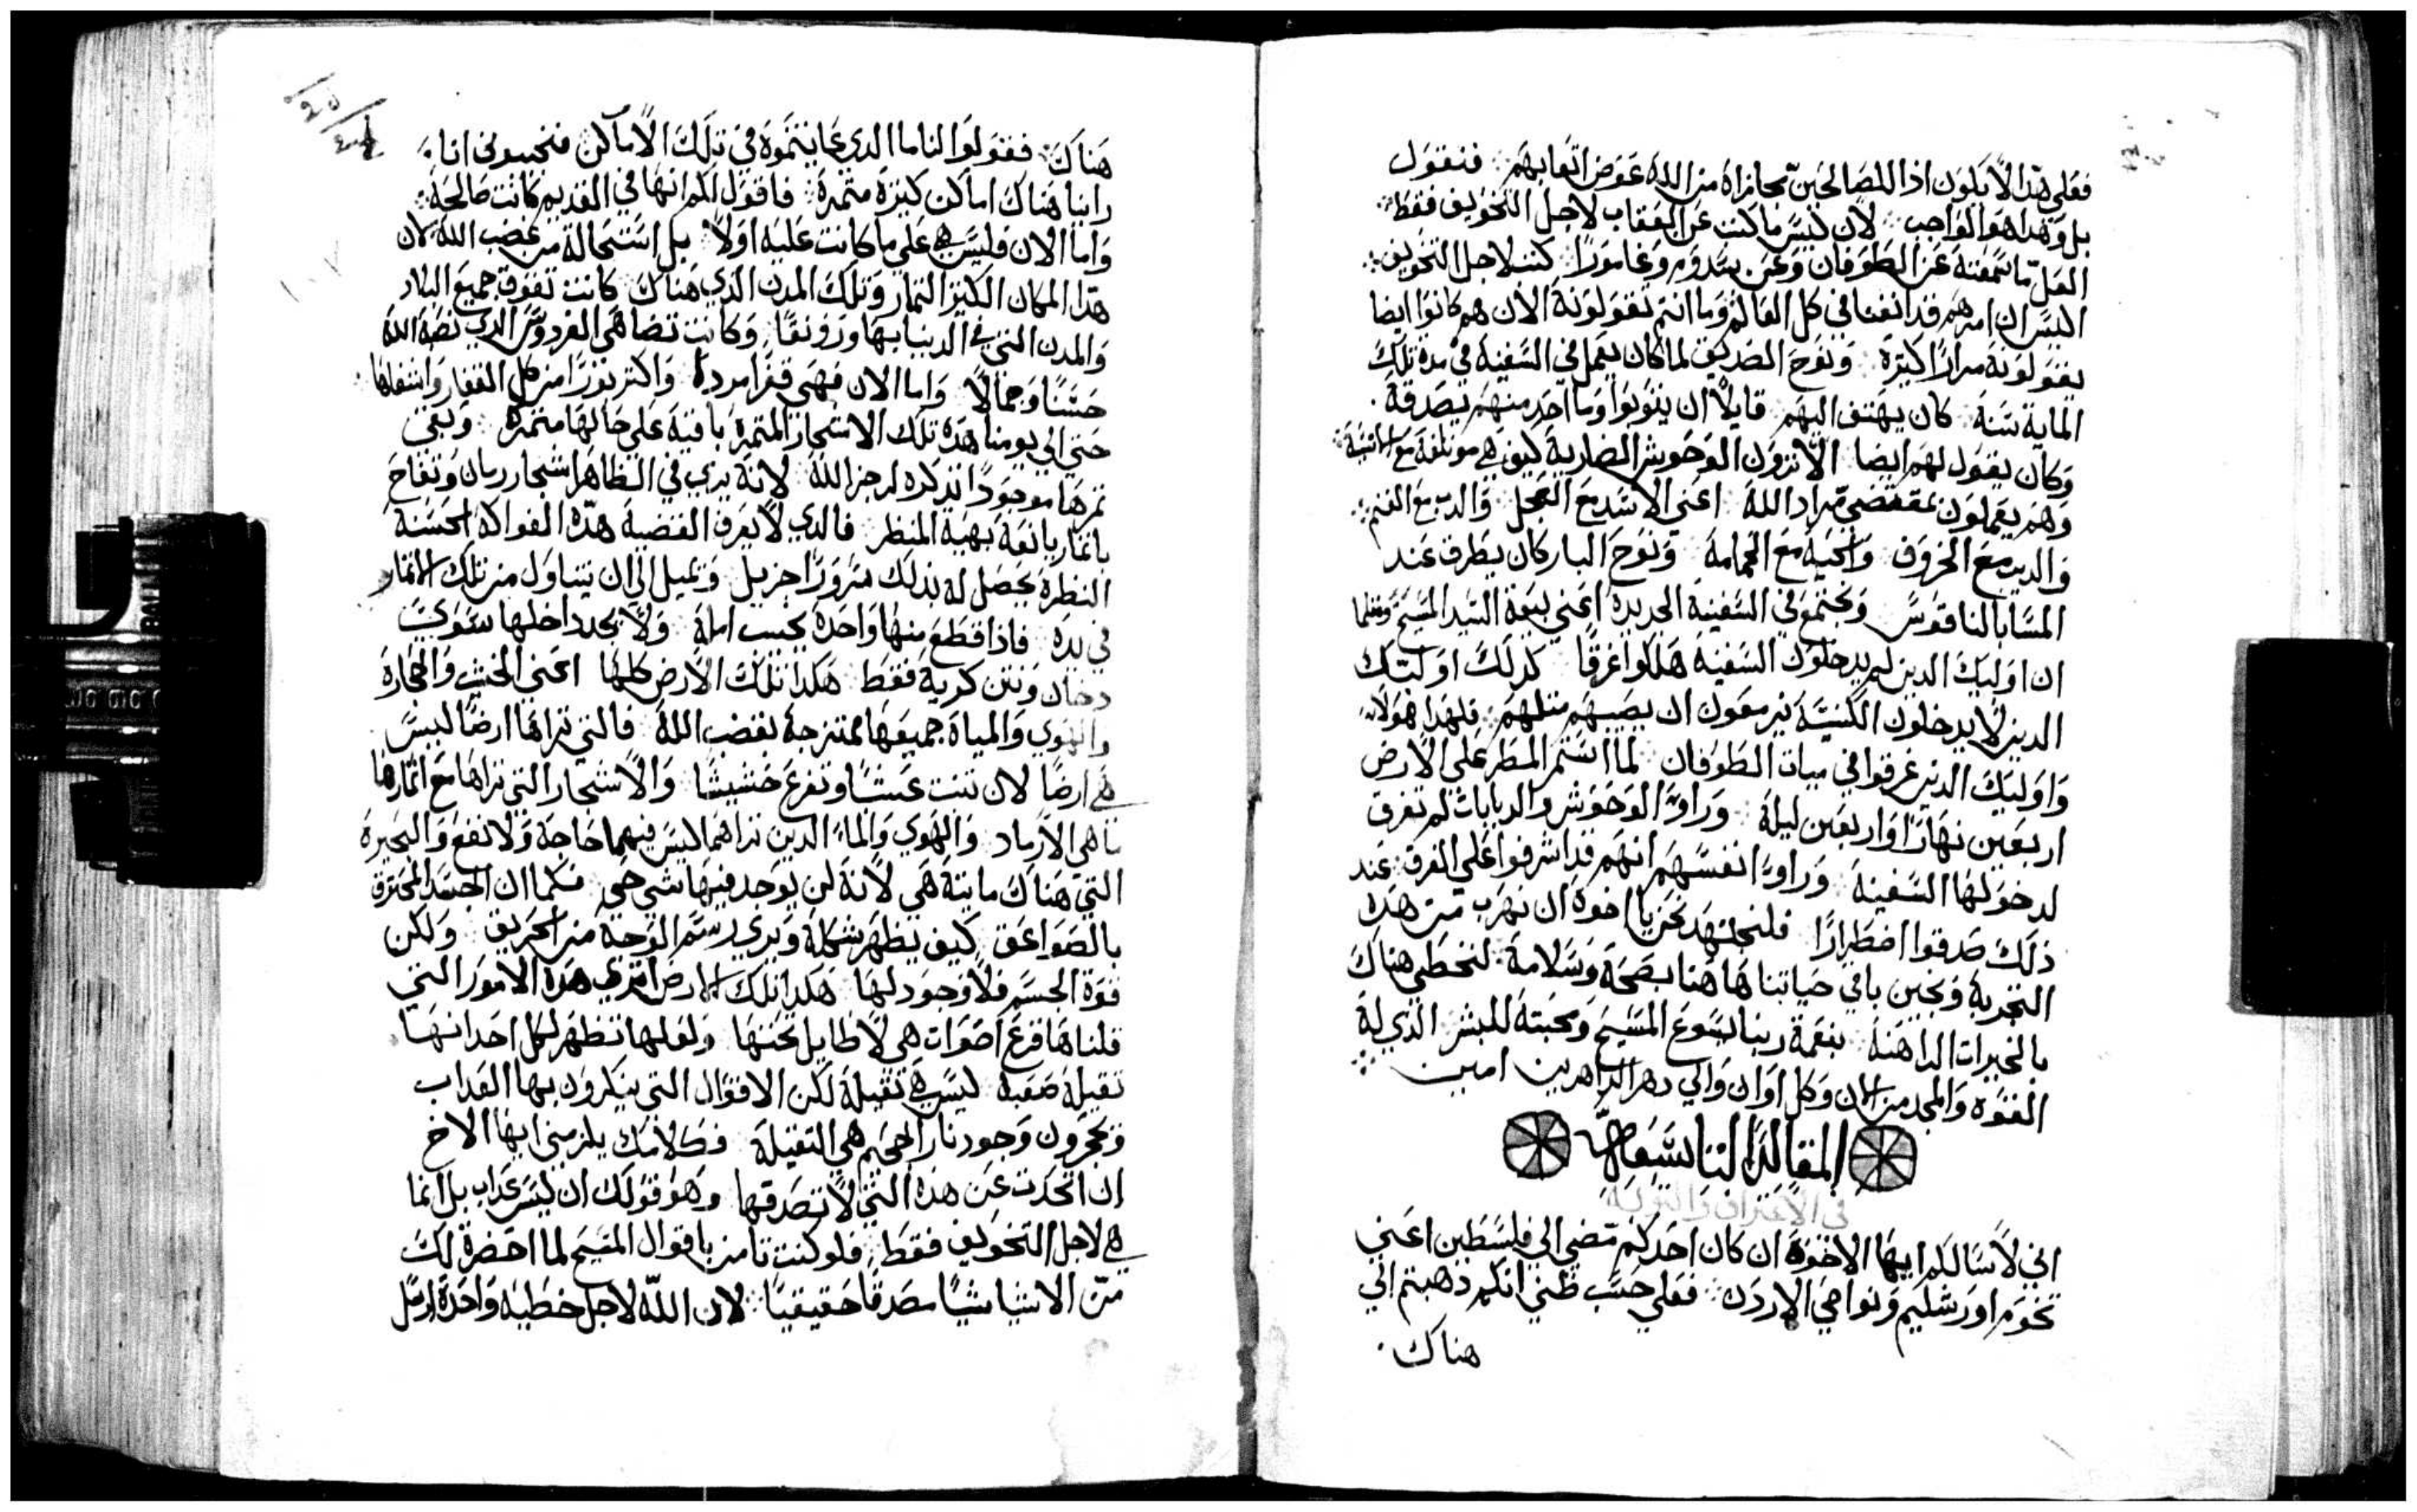 فعلي هدا لا يكون اذا للصالحين مجازاة من الله عوض اتعابهم فنقول
بل وهدا هو الواجب لان ليس ما كتب عن العقاب لاجل التخويف فقط
العل ما سمعته عن الطوفان وعن سدوم وغامورا كتب لاجل التخويف
اليس ان امرهم قد اتفتا في كل العالم وما انتم تقولونه الان هم كانوا ايضا
يقولونه مرارا كتيرة ونوح الصديق لما كان يعمل في السفينة في مدة تلك
الماية سنة كان يهتف اليهم قايلا ان يتوبوا وما احد منهم تصدقه
وكان يقول لهم ايضا الا ترون الوحوش الضارية كيف هي موتلفة مع
وهم يعملون بمقتضي مراد الله اعني الاسد مع العجل والدب مع الغنم
والديب مع الخروف والحية مع الحمامة ونوح البار كان يطرق عند
المسا بالناقوس ويجتمع في السفينة الجديدة اعني بيعة السيد المسيح ومتلما
ان اوليك الدين لم يدخلون السفينة هلكوا غرقا كدلك اوليك
الدين لا يدخلون الكنيسة يزمعون ان يصيبهم متلهم فلهدا هولاء
واوليك الدين غرقوا في مياة الطوفان لما استمر المطر علي الارض
اربعين نهارا واربعين ليلة وراوا الوحوش والدبابات لم تغرق
لدخولها السفينة وراوا انفسهم انهم قد اشرفوا علي الغرق عند
دلك صدقوا اضطرارا فلنجتهد نحن يا اخوة ان نهرب من هده
التجربة ونحبن باقي حياتنا هاهنا بصحة وسلامة لنحظي هناك
بالخيرات الداهنة بنعمة ربنا يسوع المسيح ومحبته للبشر الذي له
القوة والمجد من الان وكل اوان والي دهر الداهرين امين
المقالة التاسعة
في الاعتراف والتوبة
اني لاسالكم ايها الاخوة ان كان احدكم مضي الي فلسطين اعني
تخوم اورشليم ونواحي الاردن فعلي حسب ظني انكم ذهبتم الي
هناك
هناك فقولوا لنا ما الدي عاينتموه في تلك الاماكن فتجيبوني اننا
راينا هناك اماكن كتيرة متمرة فاقول لكم انها في القديم كانت صالحة
واما الان فليس هي علي ما كانت عليه اولا بل استحالة من غضب الله لان
هدا المكان الكتير التمار وتلك المدن الذي هناك كانت تفوق جميع البلاد
والمدن التي في الدنيا بها ورونقا وكانت تضاهي الفردوس الدي نصبه الله
حسنا وجمالا واما الان فهي قفرا مردة واكتر بورا من كل القفار واسفلها
حتي الي يومنا هده تلك الاشجار المتمرة باقية علي حالها متمرة وبقي
تمرها موجودا تدكرة لرجز الله لانه يري في الظاهر اشجار رمان وتفاح
باتمار يانعة بهية المنظر فالدي لا يعرف القضية هده الفواكه الحسنة
النظرة يحصل له بدلك سرورا جزيل وتميل الي ان يتناول من تلك الاتمار
في يده فادا قطع منها واحدة يخيب امله ولا يجد داخلها سوي
دخان ونتن كرية فقط هكدا تلك الارض كلها اعني الخشب والحجارة
والهوي والمياة جميعها ممتزجة بغضب الله فالتي تراها ارضا ليس
هي ارضا لان تنبت عشبا وتفرع حشيشا والاشجار التي تراها مع اتمارها
ما هي الا رماد والهوي والماء الدين تراهما ليس فيهما حاجة ولا نفع والبحيرة
التي هناك مايتة هي لانه لن يوجد فيها شي حي فكما ان الجسد المحترق
بالصواعق كيف يظهر شكله ويري رسم الوجه من الحريق ولكن
قوة الجسم فلا وجود لها هكدا تلك الارض انتري هده الامور التي
قلناها قرع اصوات هي لا طايل تحتها ولعلها تظهر لكل احد انها
تقيلة صعبة ليس هي تقيلة لكن الاقوال التي ينكرون بها العداب
ويجحرون وجود نار الجحيم هي التقيلة فكلامك يلزمني ايها الاخ
ان اتحدت عن هده التي لا تصدقها وهو قولك ان ليس عداب بل انما
هي لاجل التخويف فقط فلو كنت تامن باقوال المسيح لما احضرة لك
من الاشيا شيا مصدقا حقيقيا لان الله لاجل خطية واحدة ارسل